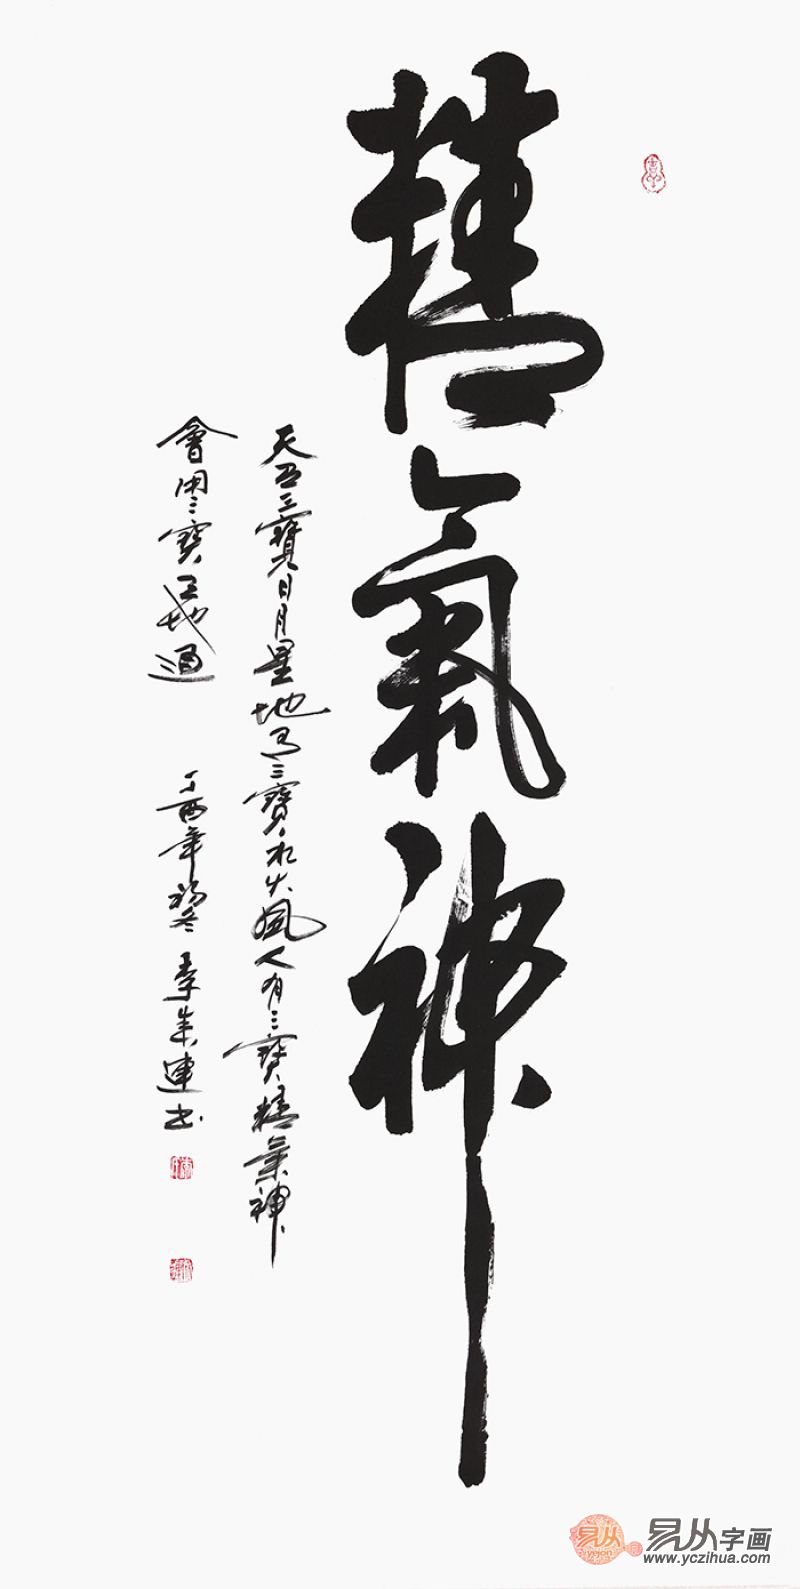 精氣神
天有三寶日月星地有三寶水火風人有三寶精氣神
會用三寶天地通
丁酉年初冬 李成連书
易从
易从字画
www.yczihua.com